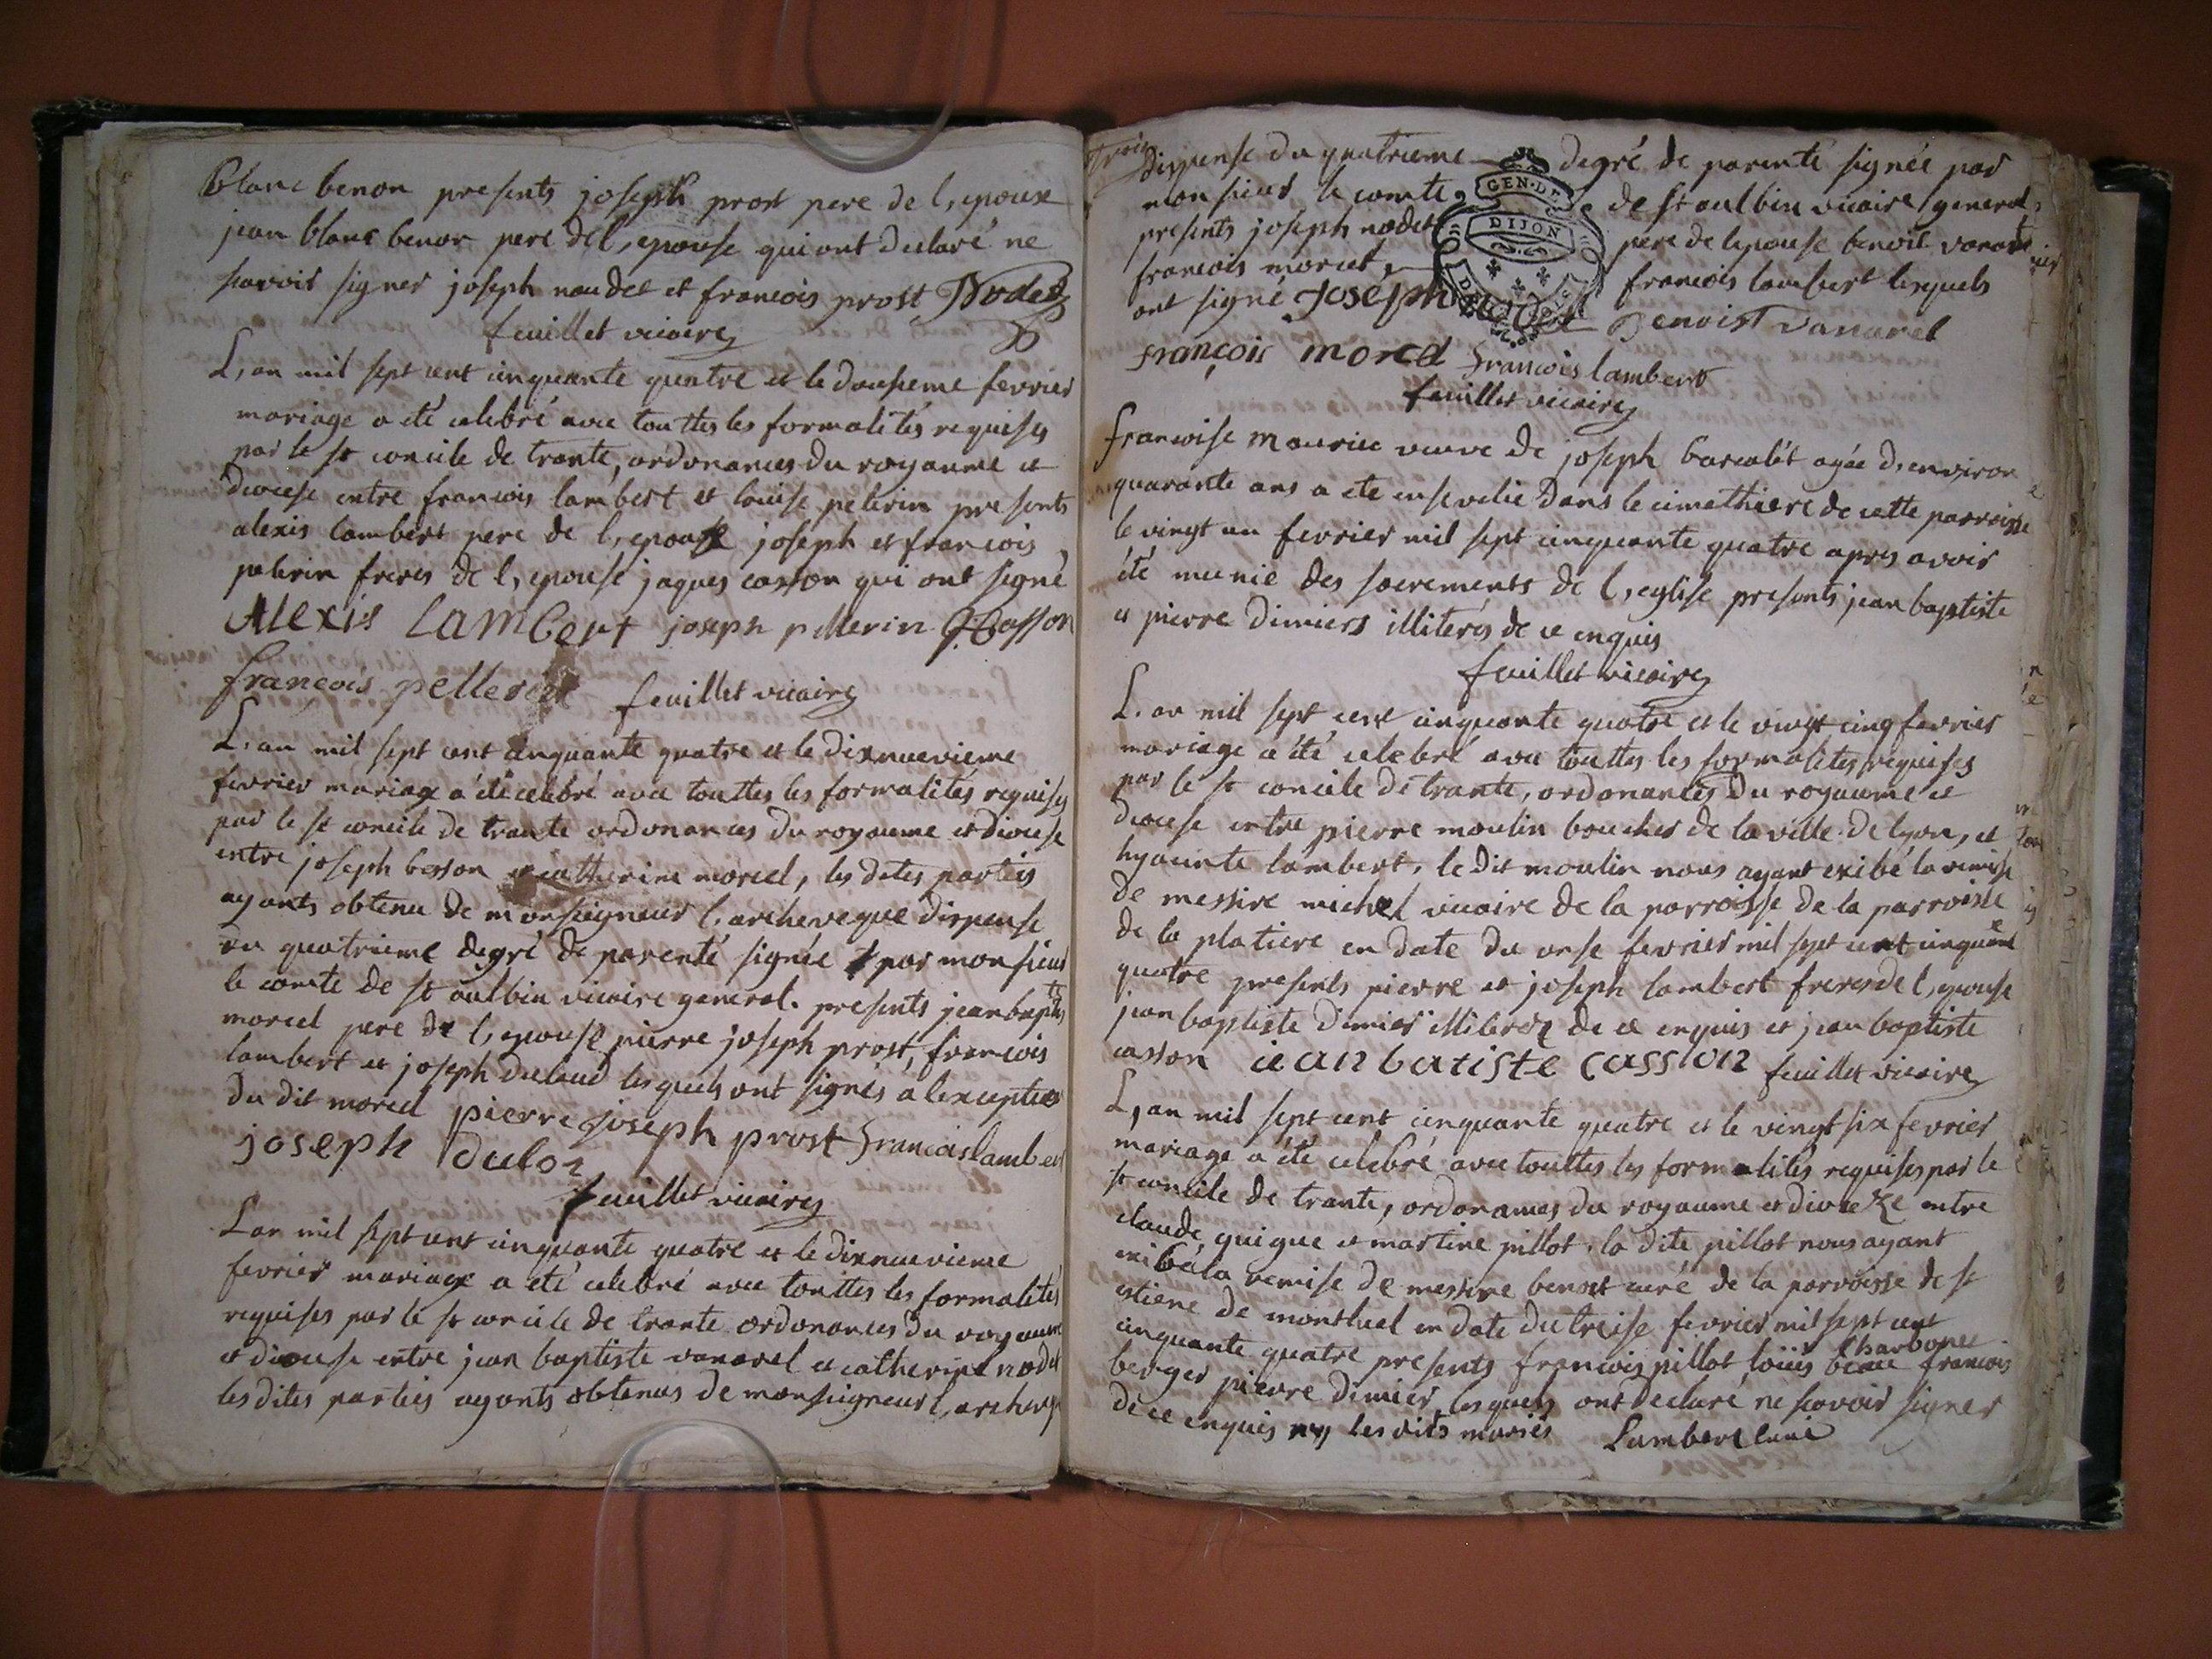 Blanc benon presents joseph prost pere de l,epoux
jean blanc benon pere del,epouse qui ont declaré ne
scavoir signer joseph naudet et francois prost Nodet
feuillet vicaire
L,an mil sept cent cinquante quatre et le dousieme fevrier
mariage a eté celebré avec touttes les formalités requises
par le st concile de trante, ordonances du royaume et
diocese entre francois lambert et louise pelerin presents
alexis lambert pere de l,epoux joseph et francois
pelerin freres de l,epouse jaques casson qui ont signé
Alexis LAMBert joseph pellerin J. Casson
françois pellerin feuillet vicaire
L,an mil sept cent cinquante quatre et le dixnuevieme
fevrier mariage a été celebré avec touttes les formalités requises
par le st concile de trante ordonances du royaume et diocese
entre joseph besson et catherine morel, les dites parties
ayants obtenu de monseigneur l,archeveque dispense
du quatrieme degré de parenté signée par monsieur
le comte de st aulbin vicaire general. presents jean baptiste
morel pere de l,epouse pierre joseph prost, francois
lambert et joseph duloud lesquels ont signés a l'exception
du dit morel pierre joseph prost francois lambert
joseph duloz
feuillet vicaire
L,an mil sept cent cinquante quatre et le dixnuevieme
fevrier mariage a eté celebré avec touttes les formalités
requises par le st concile de trante ordonances du royaume
et diocese entre jean baptiste vanarel et catherine nodet
les dites parties ayants obtenus de monseigneur l,archeveq
dispense du quatrieme degré de parenté signée par
monsieur le comte de st aulbin vicaire general,
presents joseph nodet pere de lepouse benoit vanarel
francois morcel, francois lambert lesquels
ont signé Joseph nodet Benoist vanarel
GEN. DE
DIJON
françois morcel francois lambert
feuillet vicaire
francoise maurice veuve de joseph barcalét agée d,environ
quarante ans a ete ensevelie dans le cimethiere de cette parroisse
le vingt un fevrier mil sept cinquante quatre apres avoir
été munie des sacrements de l,eglise presents jean baptiste
et pierre dimiers illiterés de ce enquis
feuillet vicaire
L,an mil sept cent cinquante quatre et le vingt cinq fevrier
mariage a été celebré avec touttes les formalités requises
par le st concile de trante, ordonances du royaume et
diocese entre pierre moulin boucher de la ville de lyon, et
hyacinte lambert, le dit moulin nous ayant exibé la remise
de messire michel vicaire de la parroisse de la parroisse
de la platiere en date du onse fevrier mil sept cent cinquante
quatre presents pierre et joseph lambert freres de l,epouse
jean baptiste dimier illiterez de ce enquis et jean baptiste
casson iean batiste casson feuillet vicaire
L,an mil sept cent cinquante quatre et le vingt six fevrier
mariage a été celebré avec touttes les formalités requises par le
st concile de trante, ordonances du royaume et diocèze entre
claude guigue et martine pillot. la dite pillot nous ayant
exibé la remise de messire benoit curé de la parroisse de st
etiene de montluel en date du treise fevrier mil sept cent
cinquante quatre presents francois pillot loüis charbone francois
berger pierre dimier, lesquels ont declaré ne scavoir signer
de ce enquis ny les dits mariés Lambert curé